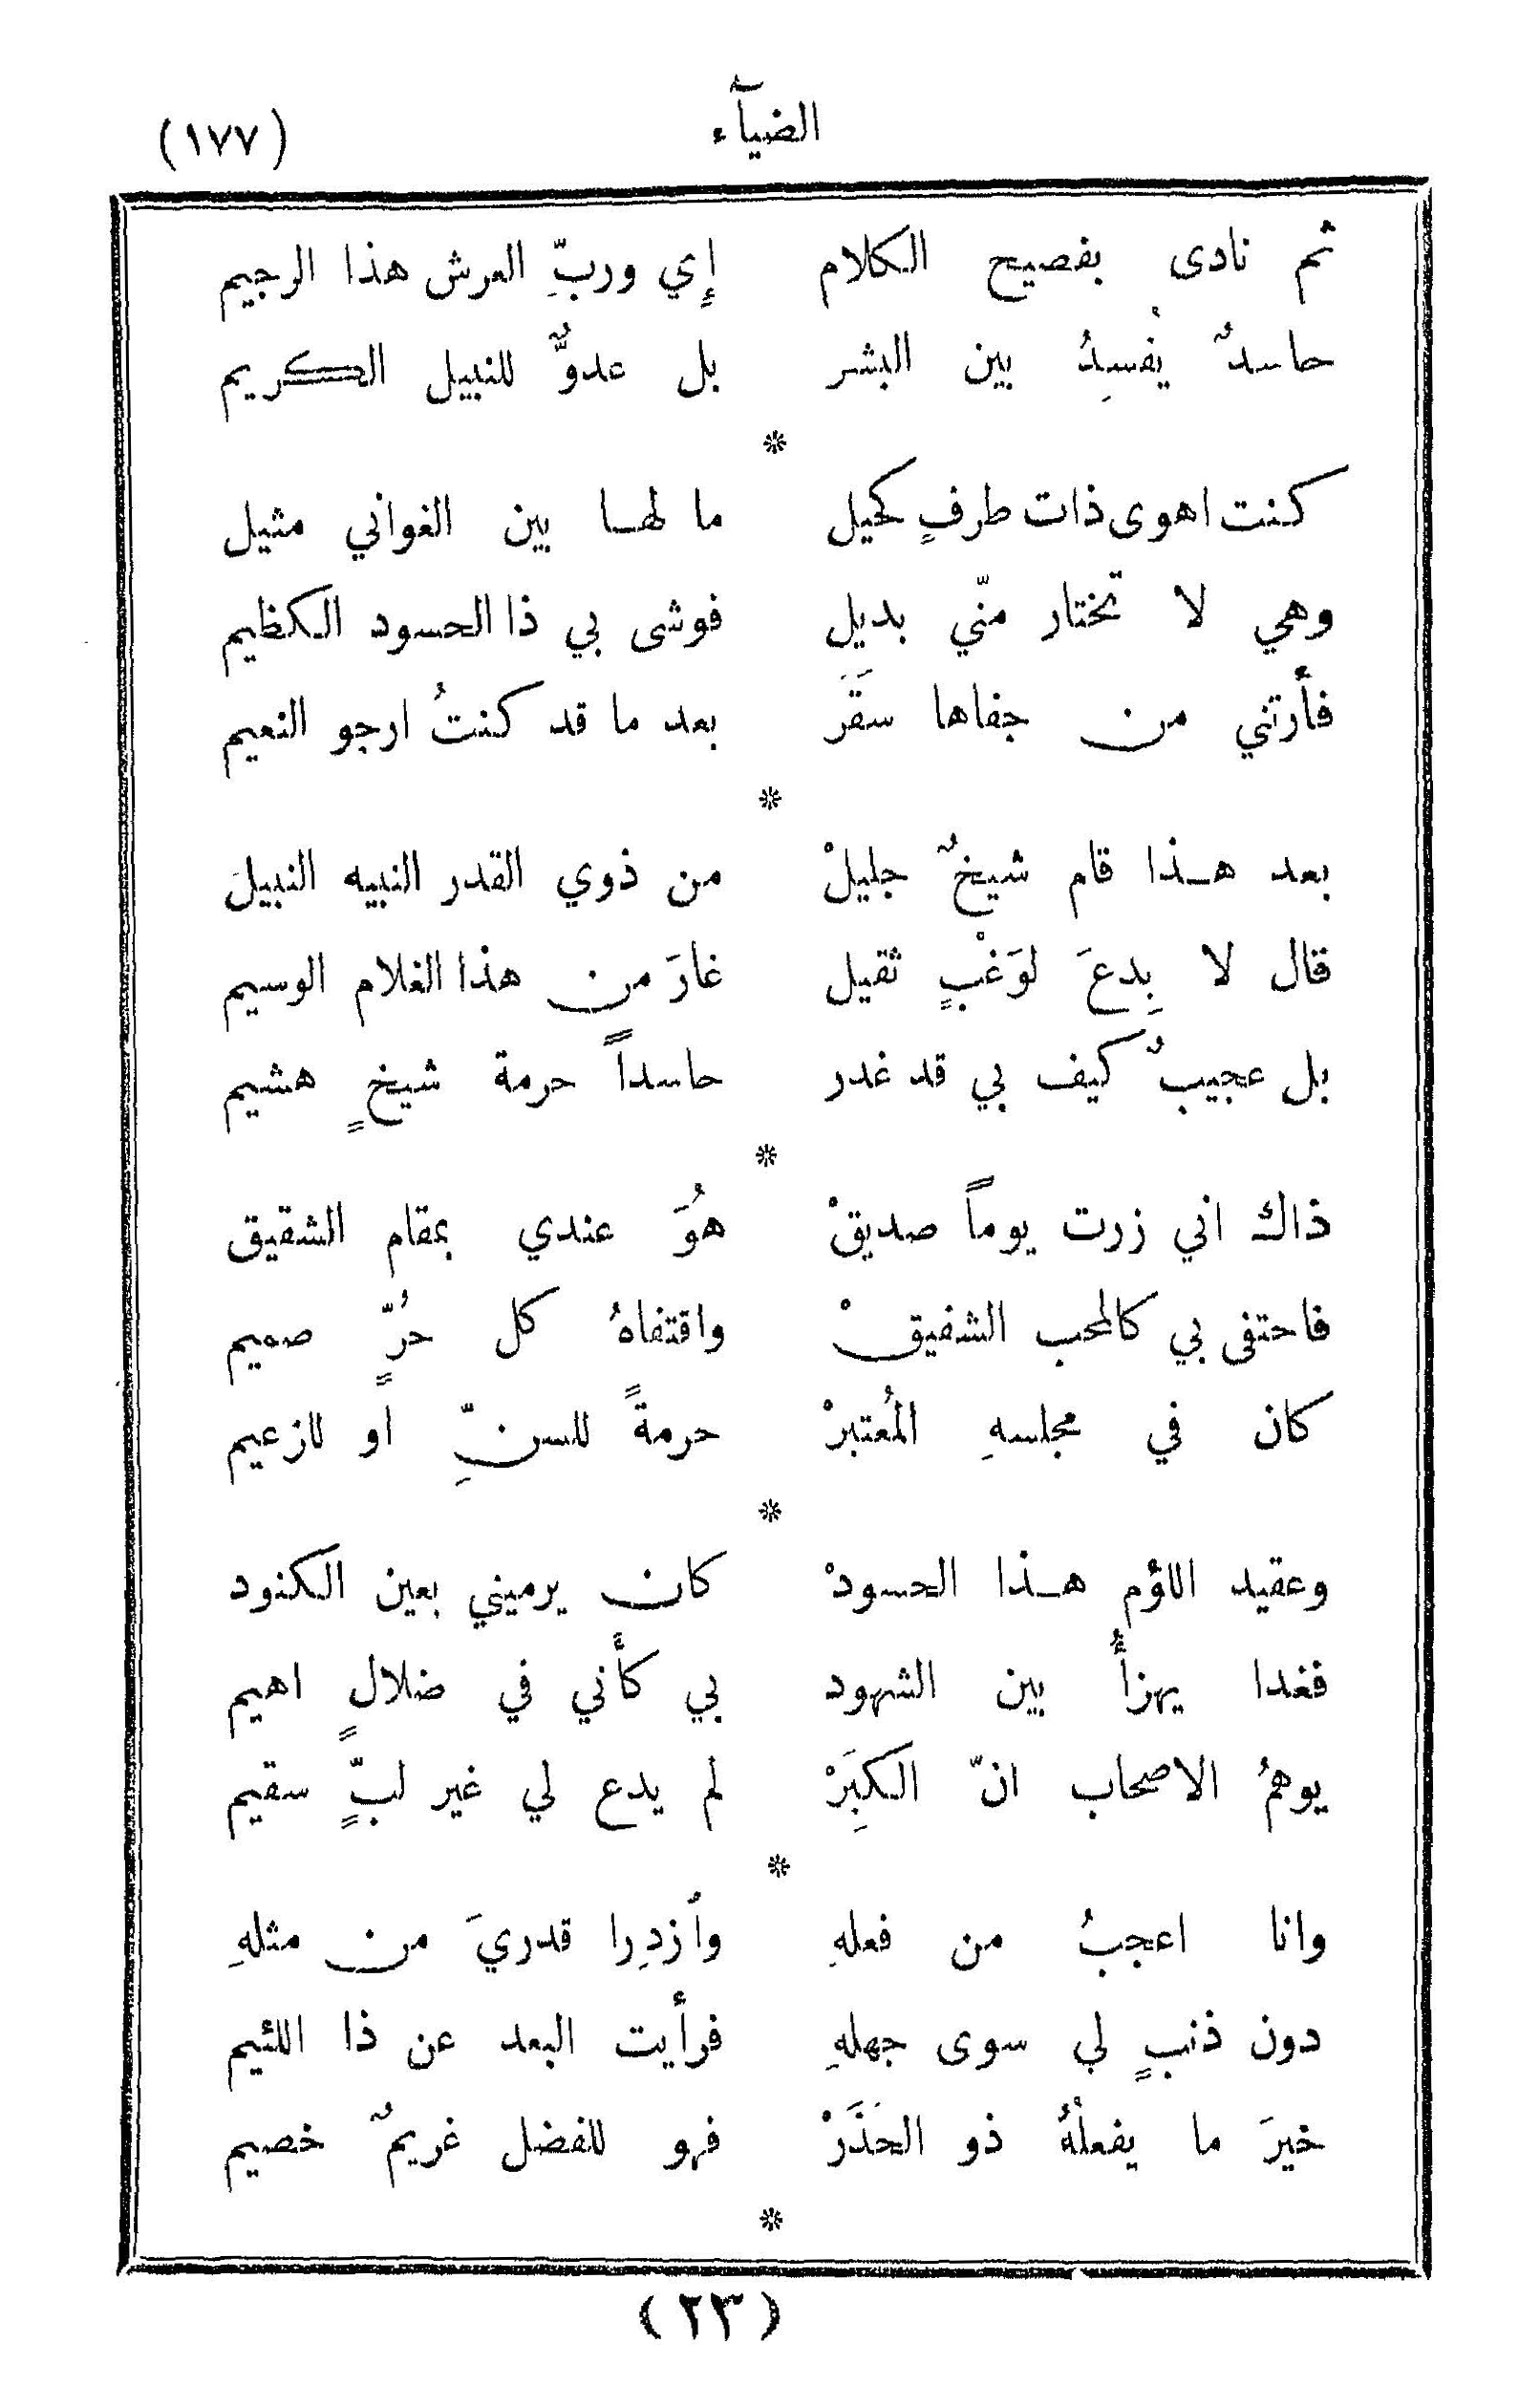 الضيآء (١٧٧)
ثم نادى بفصيح الكلام إِي وربِّ العرش هذا الرجيم
حاسدٌ يُفسِدُ بين البشر بل عدوٌّ للنبيل الكريم
*
كنت اهوى ذات طرفٍ كحيل ما لها بين الغواني مثيل
وهي لا تختار منّي بديل فوشى بي ذا الحسود الكظيم
فأرتني من جفاها سقَرَ بعد ما قد كنتُ ارجو النعيم
*
بعد هذا قام شيخٌ جليلْ من ذوي القدر النبيه النبيلَ
قال لا بِدعَ لوَغْبٍ ثقيل غارَ من هذا الغلام الوسيم
بل عجيبٌ كيف بي قد غدر حاسداً حرمة شيخٍ هشيم
*
ذاك اني زرت يوماً صديقْ هوَُ عندي بمقام الشقيق
فاحتفى بي كالمحب الشفيقْ واقتفاهُ كل حُرٍّ صميم
كان في مجلسهِ المُعتبرْ حرمةً للسنِّ او للزعيم
*
وعقيد اللؤم هذا الحسودْ كان يرميني بعين الكنود
فغدا يهزأُ بين الشهود بي كأني في ضلالٍ اهيم
يوهمُ الاصحاب انّ الكبِرَْ لم يدع لي غير لبٍّ سقيم
*
وانا اعجبُ من فعلهِ وٱزدِرا قدريَ من مثلهِ
دون ذنبٍ لي سوى جهلهِ فرأيت البعد عن ذا اللئيم
خيرَ ما يفعلْهُ ذو الحَذَرْ فهو للفضل غريمٌ خصيم
*
(٢٣)